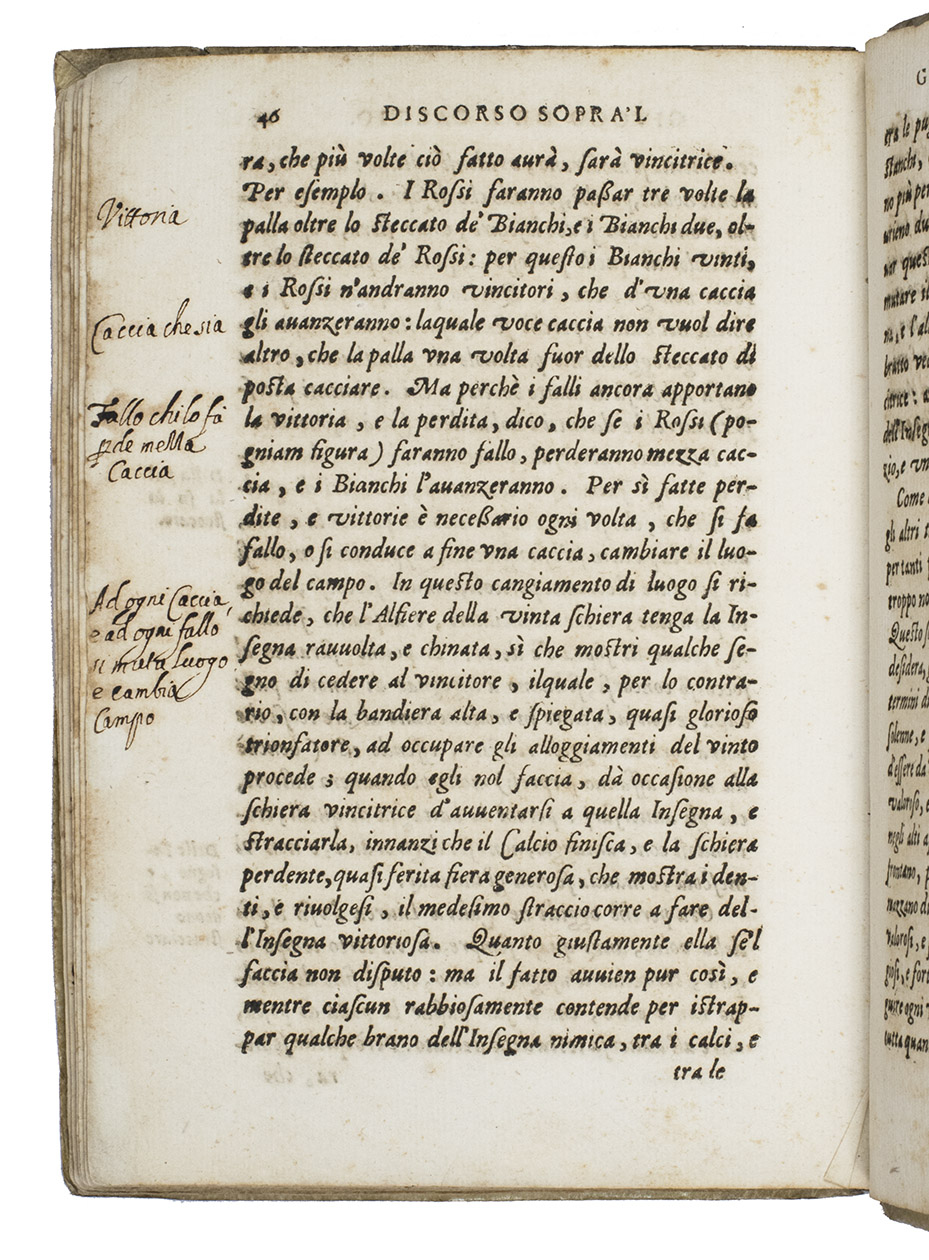 46 DISCORSO SOPRA'L
ra, che più volte ciò fatto aurà, sarà vincitrice.
Per esempio. I Rossi faranno passar tre volte la
palla oltre lo steccato de' Bianchi, e i Bianchi due, ol-
tre lo steccato de' Rossi: per questo i Bianchi vinti,
e i Rossi n'andranno vincitori, che d'vna caccia
gli auanzeranno: laquale voce caccia non vuol dire
altro, che la palla vna volta fuor dello steccato di
posta cacciare. Ma perchè i falli ancora apportano
la vittoria, e la perdita, dico, che se i Rossi (po-
gniam figura) faranno fallo, perderanno mezza cac-
cia, e i Bianchi l'auanzeranno. Per sì fatte per-
dite, e vittorie è necessario ogni volta, che si fa
fallo, o si conduce a fine vna caccia, cambiare il luo-
go del campo. In questo cangiamento di luogo si ri-
chiede, che l'Alfiere della vinta schiera tenga la In-
segna rauuolta, e chinata, sì che mostri qualche se-
gno di cedere al vincitore, ilquale, per lo contra-
rio, con la bandiera alta, e spiegata, quasi glorioso
trionfatore, ad occupare gli alloggiamenti del vinto
procede; quando egli nol faccia, dà occasione alla
schiera vincitrice d'auuentarsi a quella Insegna, e
stracciarla, innanzi che il Calcio finisca, e la schiera
perdente, quasi ferita fiera generosa, che mostra i den-
ti, e riuolgesi, il medesimo straccio corre a fare del-
l'Insegna vittoriosa. Quanto giustamente ella se'l
faccia non disputo: ma il fatto auuien pur così, e
mentre ciascun rabbiosamente contende per istrap-
par qualche brano dell'Insegna nimica, tra i calci, e
tra le
Vittoria
Caccia che sia
Fallo chi lo fà
pde mezza
Caccia
Ad ogni Caccia,
e ad ogni fallo
si muta luogo
e cambia
Campo